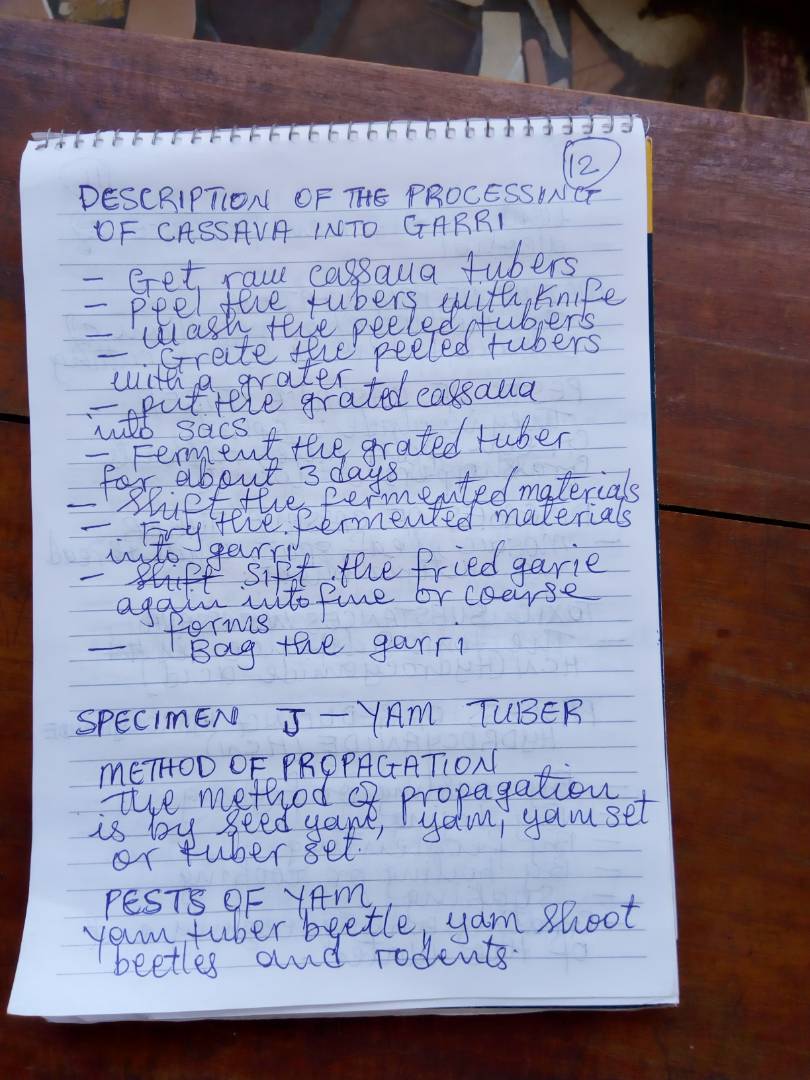 12
DESCRIPTION OF THE PROCESSING
OF CASSAVA INTO GARRI
- Get raw cassava tubers
- Peel the tubers with knife
- Wash the peeled tubers
- Grate the peeled tubers
with a grater
- Put the grated cassava
into sacs
- Ferment the grated tuber
for about 3 days
- Shift the fermented materials
- Fry the fermented materials
into garri
- Shift Sift the fried garie
again into fine or coarse
forms
- Bag the garri
SPECIMEN J - YAM TUBER
METHOD OF PROPAGATION
The method of propagation
is by seed yam, yam, yam set
or tuber set.
PESTS OF YAM
Yam tuber beetle, yam shoot
beetles and rodents.